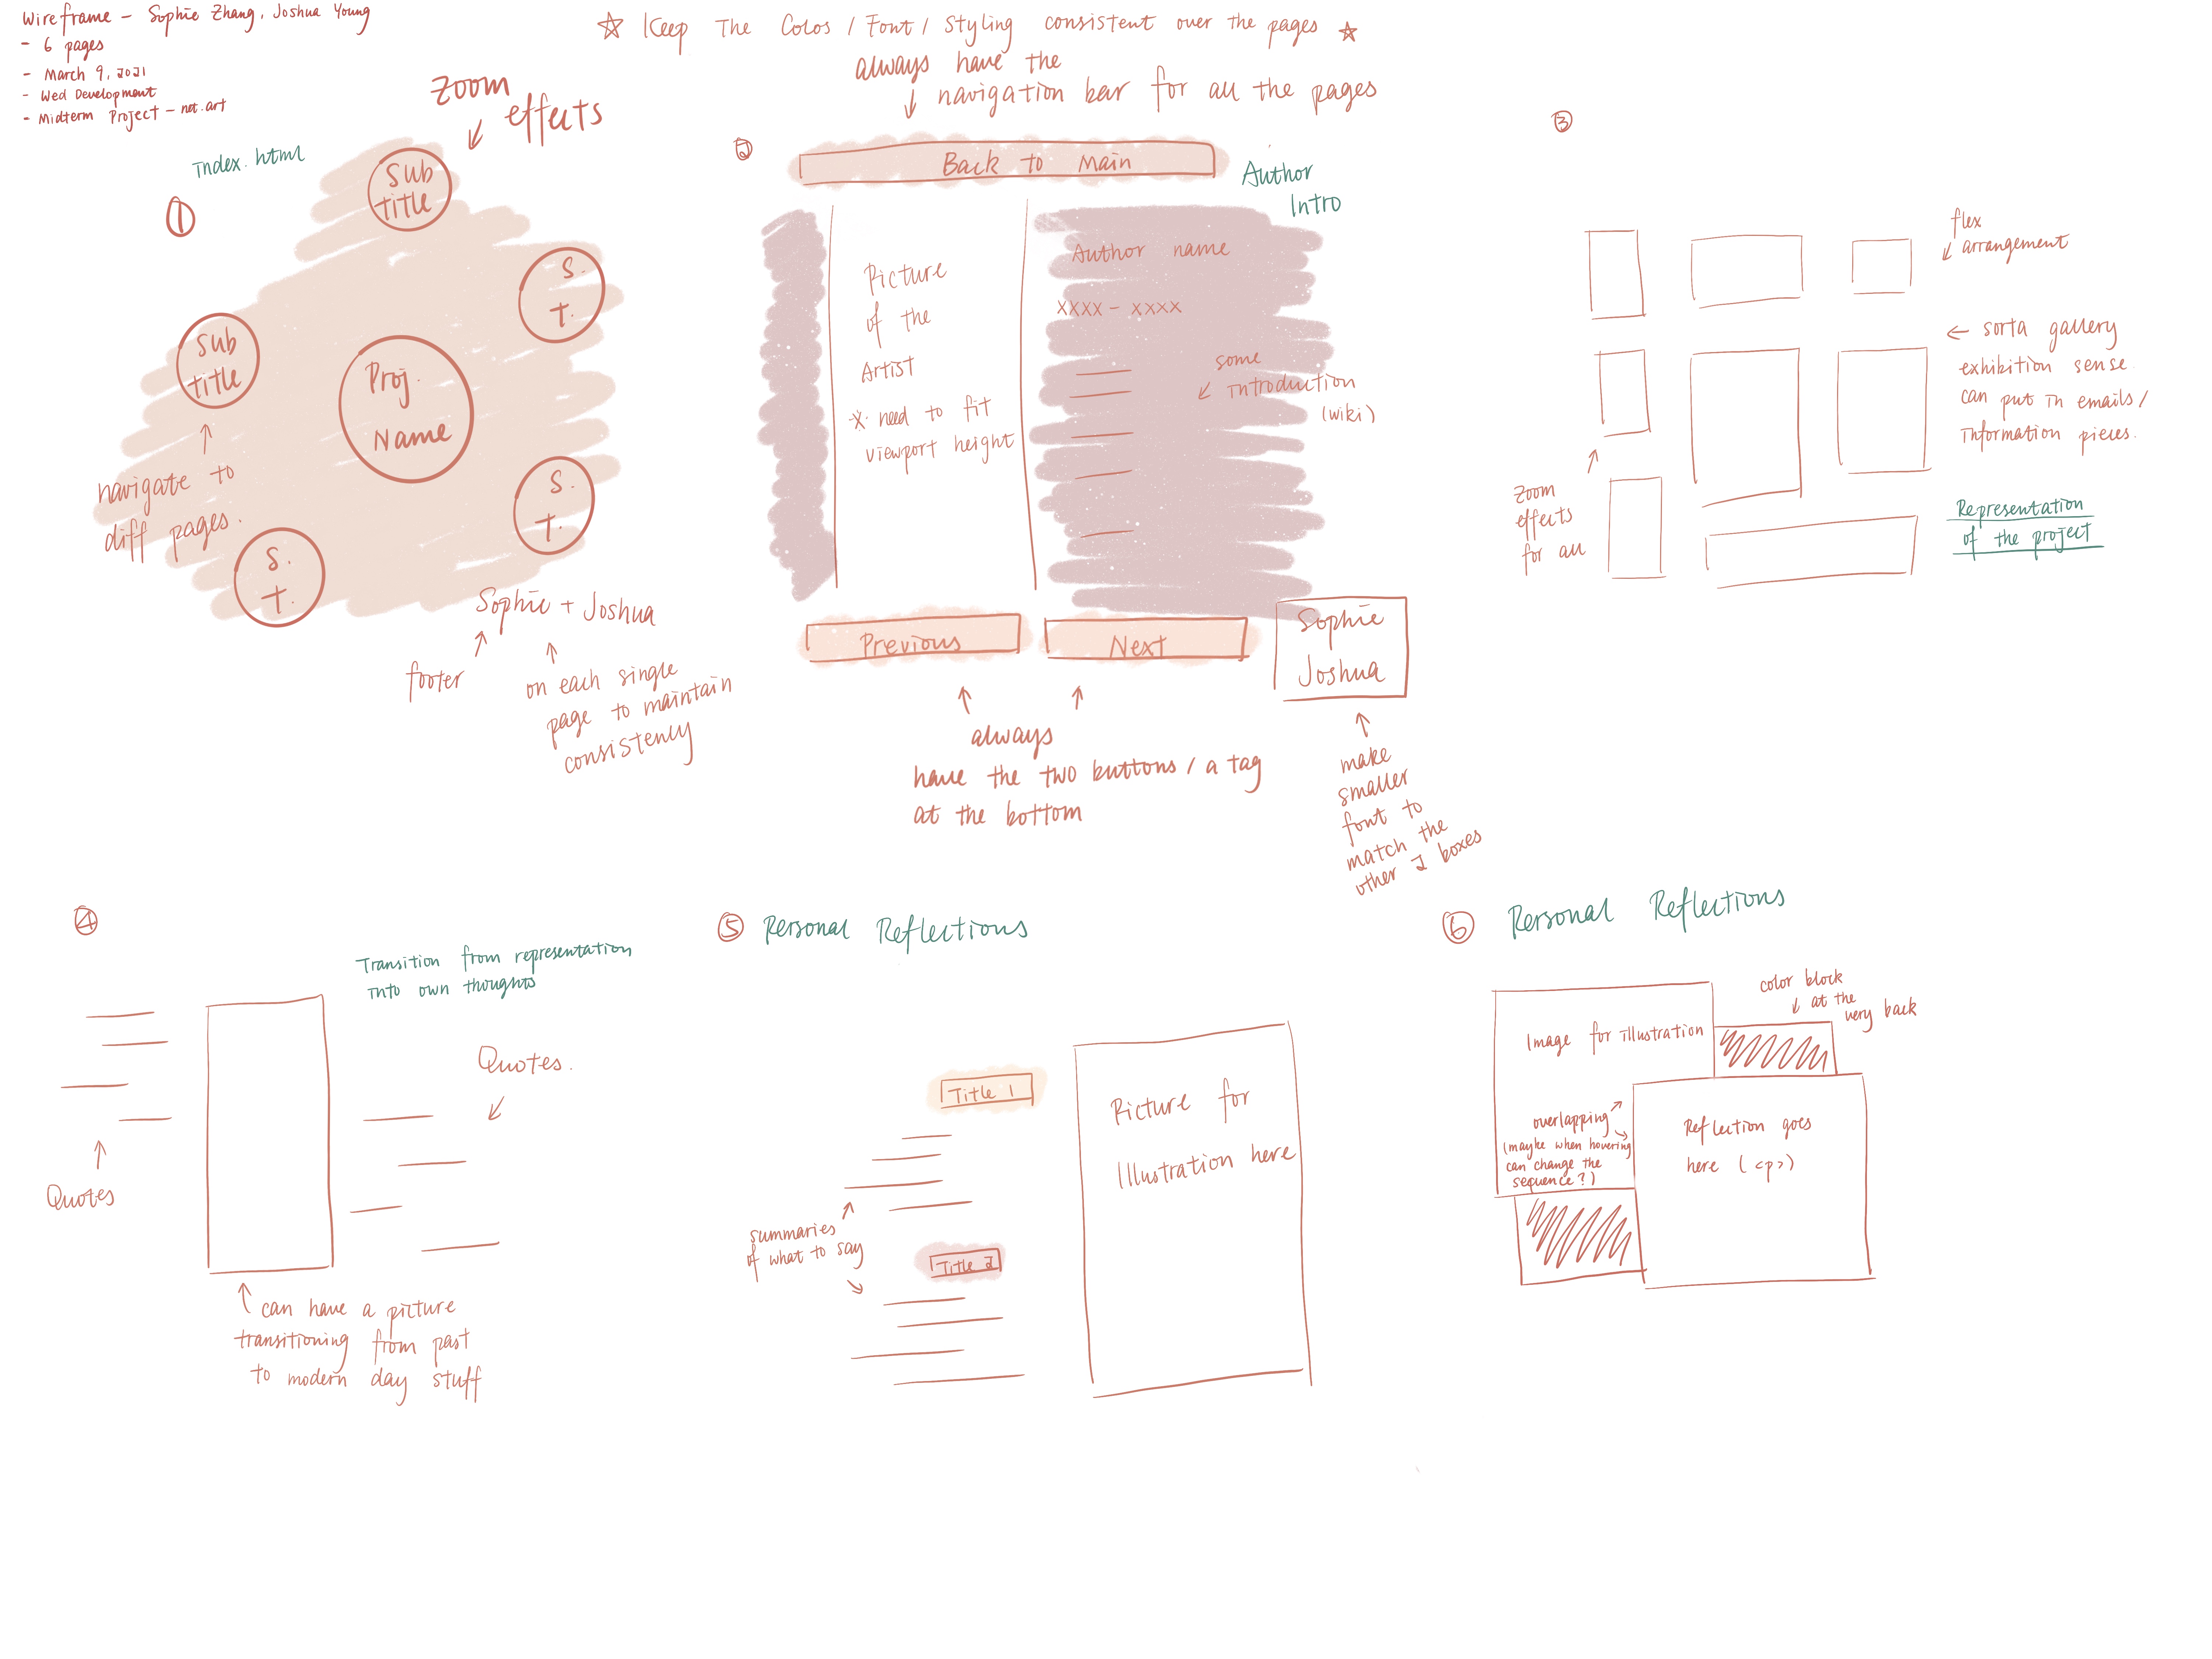 Wireframe - Sophie Zhang, Joshua Young
- 6 pages
- March 9, 2021
- Wed Development
- Midterm Project - net.art
☆ Keep The Colos / Font / Styling consistent over the pages ☆
always have the
↓ navigation bar for all the pages
Zoom
↙ effects
index.html
①
Sub
title
S.
T.
Sub
title
Proj.
Name
↑
navigate to
diff pages.
S.
T.
S.
T.
Sophie + Joshua
↗
footer
↑
on each single
page to maintain
consistenly
②
Back to Main
Author
Intro
Picture
of the
Artist
※ need to fit
viewport height
Author name
XXXX - XXXX
some
↙ introduction
(wiki)
Previous
Next
Sophie
Joshua
↑ ↑
always
have the two buttons / a tag
at the bottom
↑
make
smaller
font to
match the
other 2 boxes
③
flex
↙ arrangement
← sorta gallery
exhibition sense.
can put in emails /
information pieces.
↗
Zoom
effects
for all
Representation
of the project
④
Transition from representation
into own thoughts
Quotes.
↙
↑
Quotes
↑ can have a picture
transitioning from past
to modern day stuff
⑤ Personal Reflections
Title 1
Picture for
Illustration here
↗
summaries
of what to say
↘
Title 2
⑥ Personal Reflections
color block
↓ at the
very back
Image for illustration
overlapping ↗
↘
(mayke when hovering
can change the
sequence?)
Reflection goes
here (<p>)